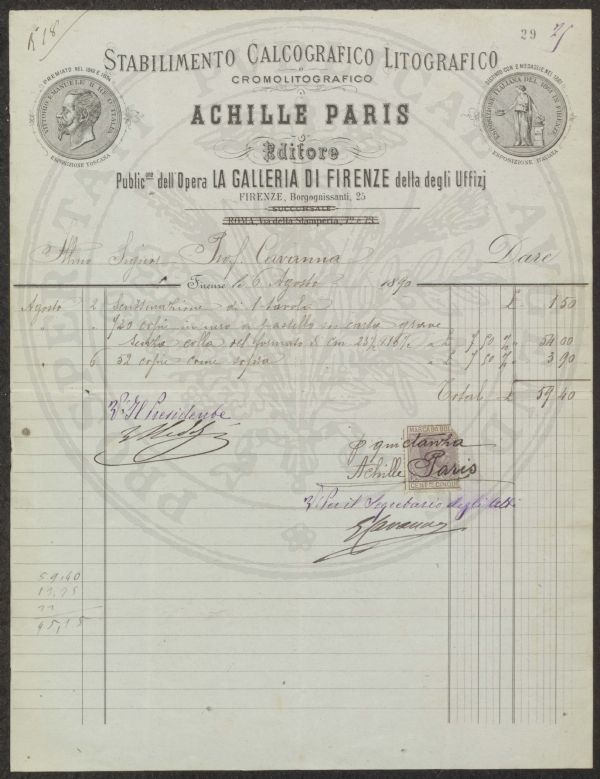 N° 18
29
STABILIMENTO CALCOGRAFICO LITOGRAFICO
E
CROMOLITOGRAFICO
PREMIATO NEL 1846 E 1854
VITTORIO EMANUELE II RE D'ITALIA
ESPOSIZIONE TOSCANA
ESPOSIZIONE ITALIANA DEL 1861 IN FIRENZE
ESPOSIZIONE ITALIANA
ACHILLE PARIS
Editore
Public.one dell'Opera LA GALLERIA DI FIRENZE detta degli Uffizj
FIRENZE, Borgognissanti, 25
SUCCURSALE
ROMA, Via della Stamperia, 72 e 73
Illmo Signor Prof. Cavanna Dare
Firenze li 6 Agosto 1890
Agosto 2 di 1 tavola £ 1 50
" " 720 copie in nero a pastello su carta grave
senza colla del formato di Cm a £ 7.50 % " 54 00
" 6 52 copie come sopra " £ 7 50 % " 3 90
Total £ 59 40
V° Il Presidente
MARCA DA BOLLO
p quietanza
Achille Paris
CENT. CINQUE
V° Per il Segretario degli Atti
G Cavanna
59,40
45,15